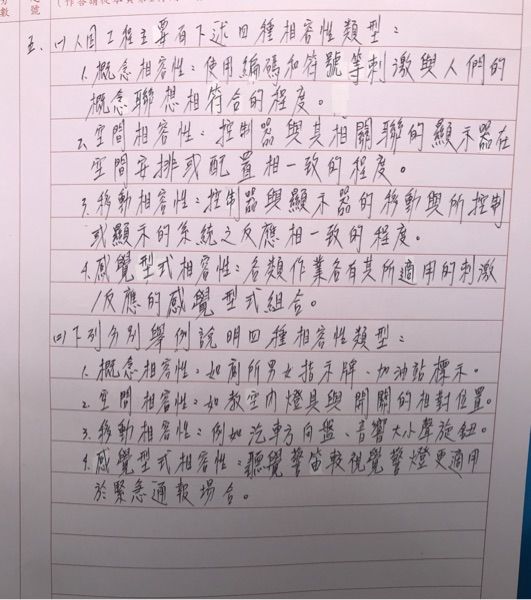 號
數
(作答請從本頁第1行開
五、(一)人因工程主要有下述四種相容性類型：
1.概念相容性：使用編碼和符號等刺激與人們的
概念聯想相符合的程度。
2.空間相容性：控制器與其相關聯的顯示器在
空間安排或配置相一致的程度。
3.移動相容性：控制器與顯示器的移動與所控制
或顯示的系統之反應相一致的程度。
4.感覺型式相容性：各類作業各有其所適用的刺激
/反應的感覺型式組合。
(二)下列分別舉例說明四種相容性類型：
1.概念相容性：如廁所男女指示牌、加油站標示。
2.空間相容性：如教室內燈具與開關的相對位置。
3.移動相容性：例如汽車方向盤、音響大小聲旋鈕。
4.感覺型式相容性：聽覺警笛較視覺警燈更適用
於緊急通報場合。